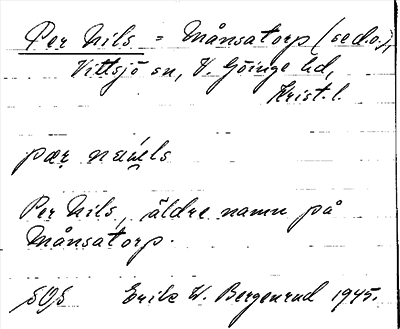 Per Nils = Månsatorp (se d.o.),
Vittsjö sn, V. Göinge hd,
Krist. l.
pær nils
Per Nils, äldre namn på
Månsatorp.
SOS Erik W. Bergenrud 1945.